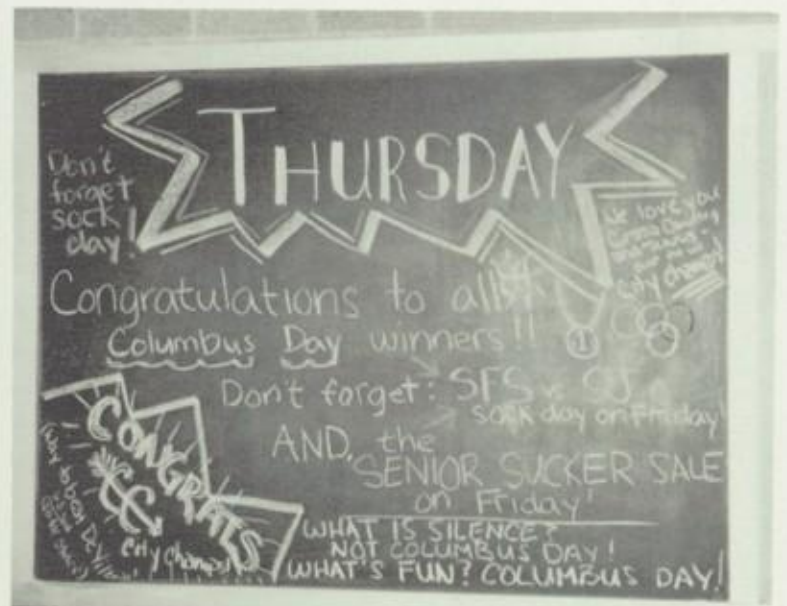 THURSDAY
Don't
forget
sock
day!
We love you
city champs!
Congratulations to all
Columbus Day winners!!
1
Don't forget: SFS v. SJ
sock day on Friday!
AND, the
SENIOR SUCKER SALE
on Friday!
CONGRATS
CC
City Champs!
WHAT IS SILENCE?
NOT COLUMBUS DAY!
WHAT'S FUN? COLUMBUS DAY!